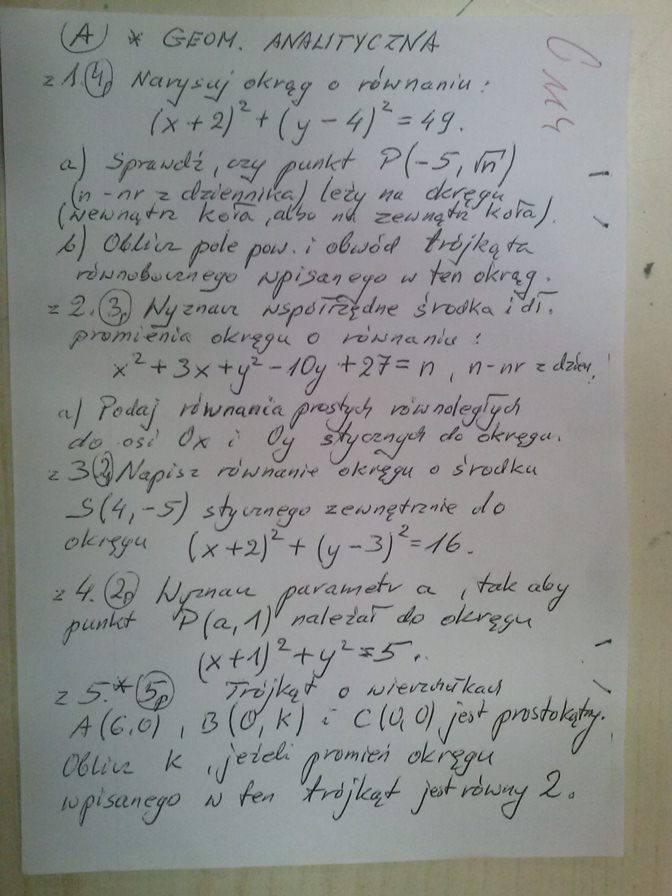 (A) * GEOM. ANALITYCZNA
z 1. (4p) Narysuj okrąg o równaniu:
(x+2)² + (y-4)² = 49.
a) Sprawdź, czy punkt P(-5, √n)
(n - nr z dziennika) leży na okręgu
(wewnątrz koła, albo na zewnątrz koła).
b) Oblicz pole pow. i obwód trójkąta
równobocznego wpisanego w ten okrąg.
z 2. (3p) Wyznacz współrzędne środka i dł.
promienia okręgu o równaniu:
x² + 3x + y² - 10y + 27 = n, n - nr z dzien.
a) Podaj równania prostych równoległych
do osi Ox i Oy stycznych do okręgu.
z 3 (2p) Napisz równanie okręgu o środku
S(4, -5) stycznego zewnętrznie do
okręgu (x+2)² + (y-3)² = 16.
z 4. (2p) Wyznacz parametr a, tak aby
punkt P(a, 1) należał do okręgu
(x+1)² + y² = 5.
z 5.* (5p) Trójkąt o wierzchołkach
A(6,0), B(0, k) i C(0,0) jest prostokątny.
Oblicz k, jeżeli promień okręgu
wpisanego w ten trójkąt jest równy 2.